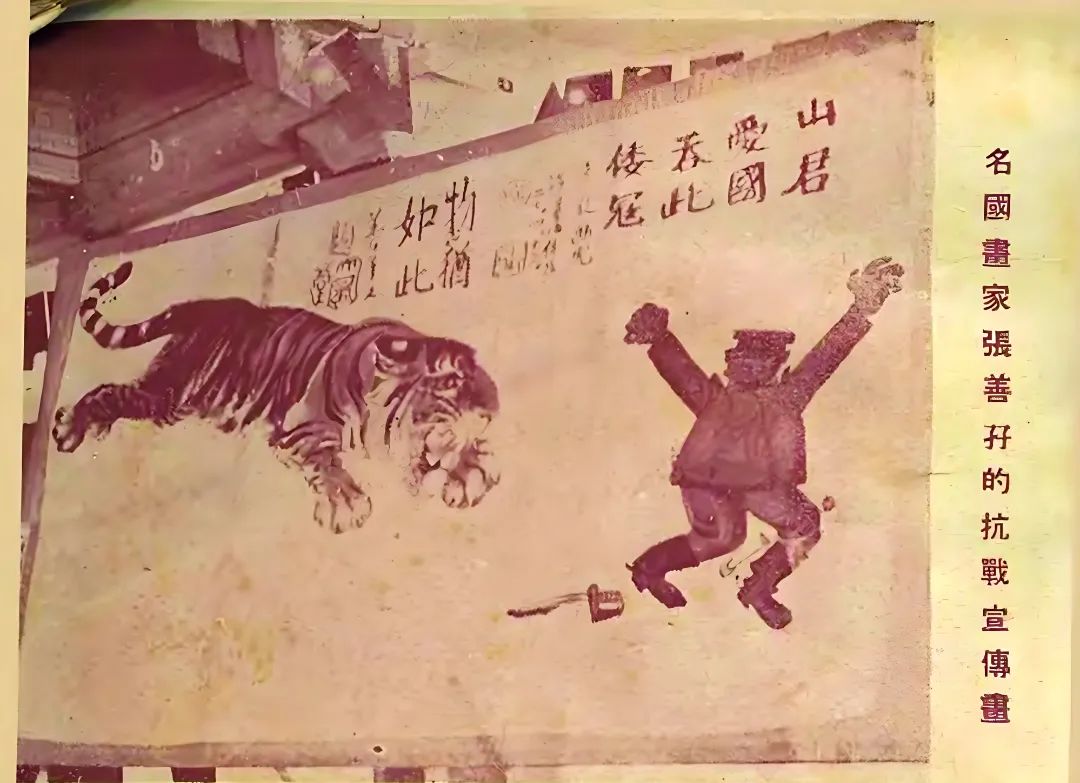 名國畫家張善孖的抗戰宣傳畫
山君
愛國
吞此
倭寇
物猶
如此